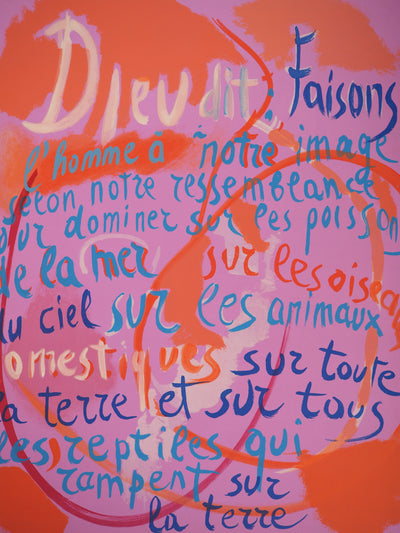 Dieu dit: Faisons
l'homme à notre image
selon notre ressemblance
our dominer sur les poisson
de la mer sur les oiseau
du ciel sur les animaux
omestiques sur toute
la terre et sur tous
les reptiles qui
rampent sur
la terre